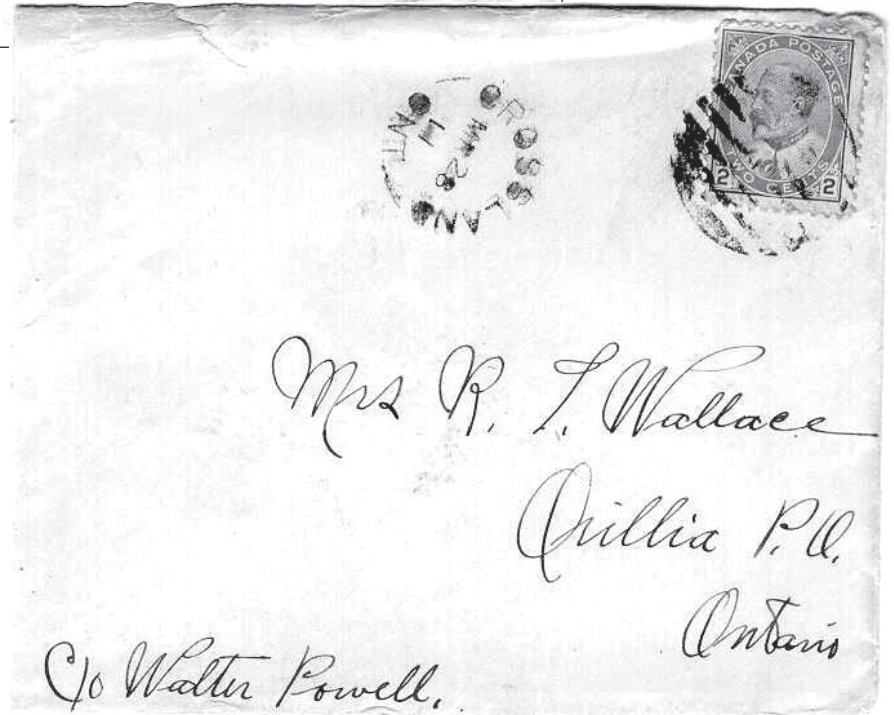 CANADA POSTAGE
2 TWO CENTS 2
ROSSLAND
28
17
ONT
Mrs R. T. Wallace
Orillia P.O.
Ontario
C/o Walter Powell.